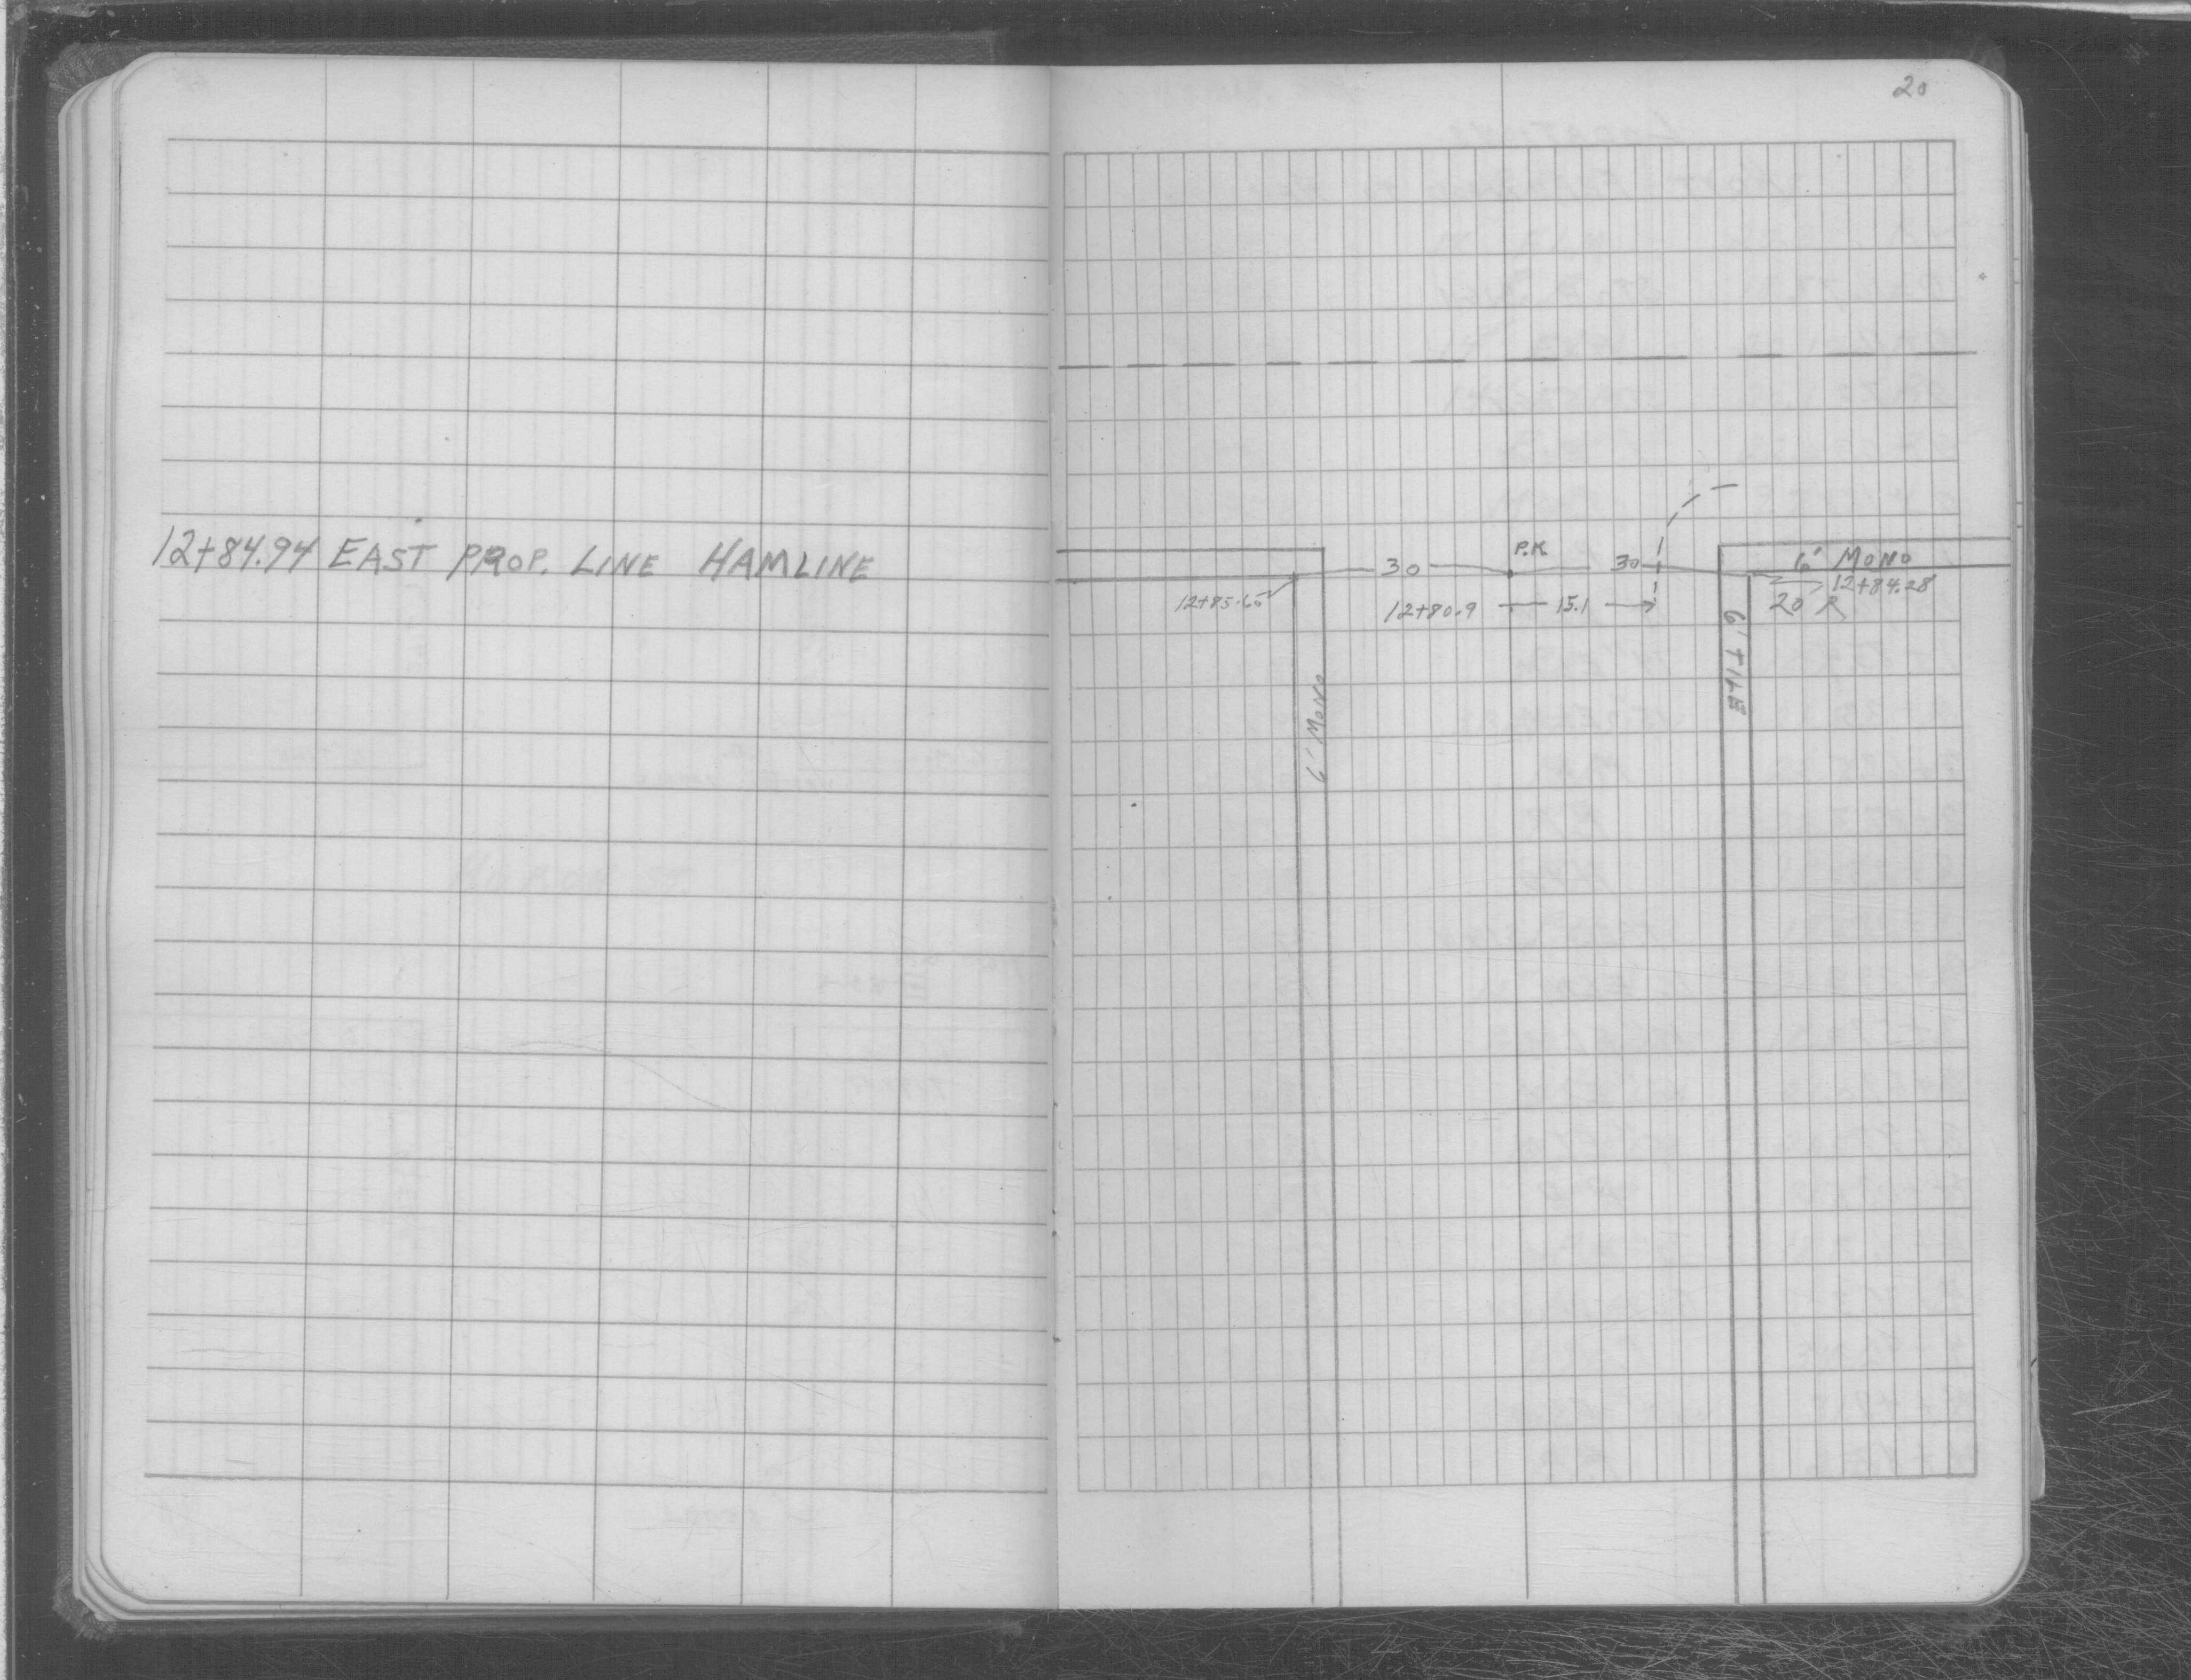 20
12+84.94 EAST PROP. LINE HAMLINE
P.K.
30 30 6' MONO
12+85.65 12+80.9 15.1 12+84.28
20 R
6' TILE
6' MONO